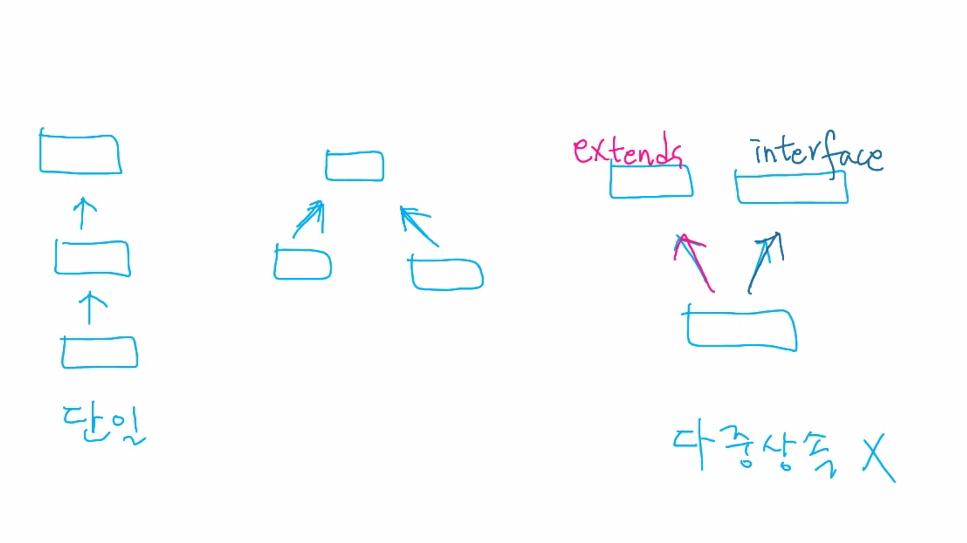 extends
interface
단일
다중상속 X